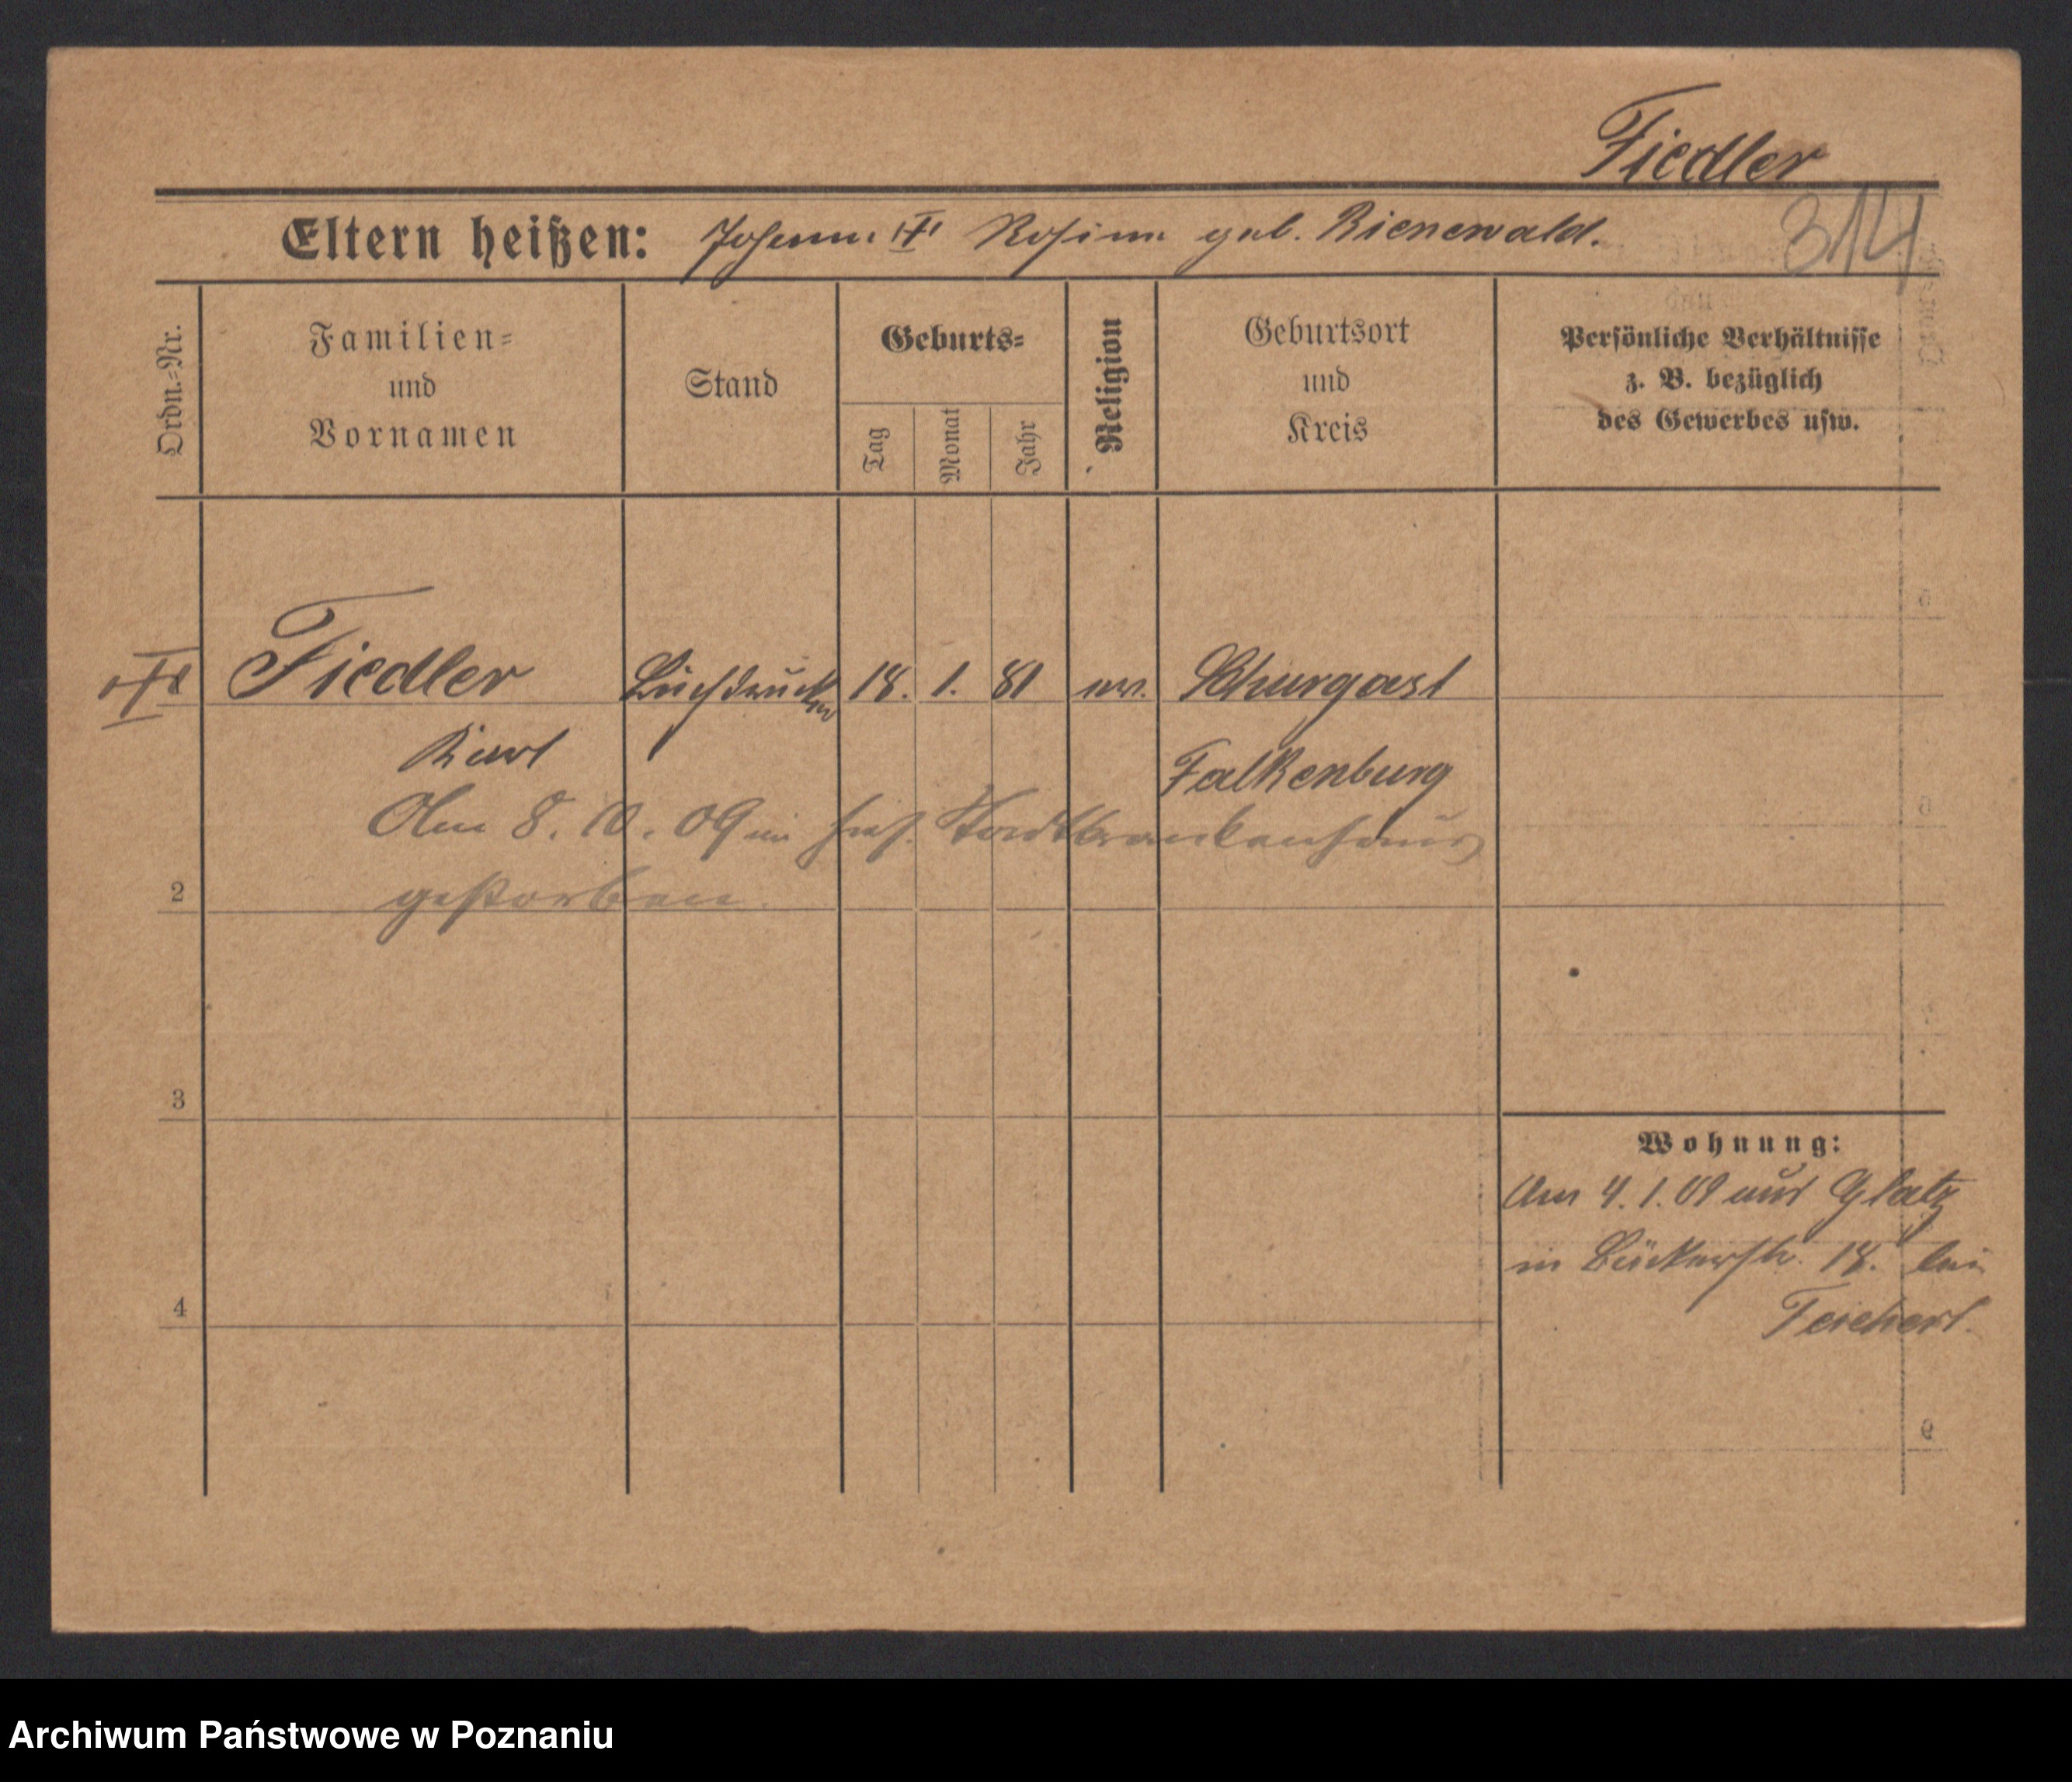 Fiedler
Eltern heißen: Johann u. Rosina geb. Bienewald.
314
Ordn.=Nr.
Familien=
und
Vornamen
Stand
Geburts=
Tag
Monat
Jahr
Religion
Geburtsort
und
Kreis
Persönliche Verhältnisse
z. B. bezüglich
des Gewerbes usw.
Fiedler
Buchdrucker
18. 1. 81
ev.
Schurgast
Karl
Falkenburg
Am 8. 10. 09 im hies. Stadtkrankenhaus
gestorben.
2
3
4
Wohnung:
Am 4. 1. 09 aus Glatz
in Bäckerstr. 18. bei
Teichert.
Archiwum Państwowe w Poznaniu